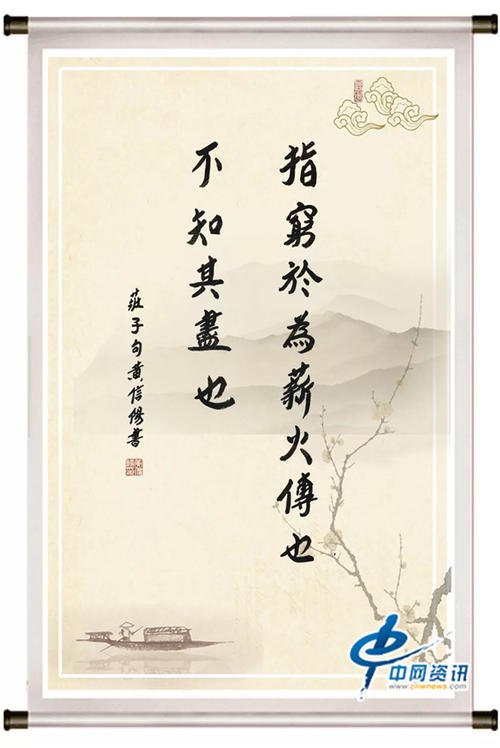 指窮於為薪火傳也
不知其盡也
莊子句黄信修書
中网资讯
www.cnwnews.com